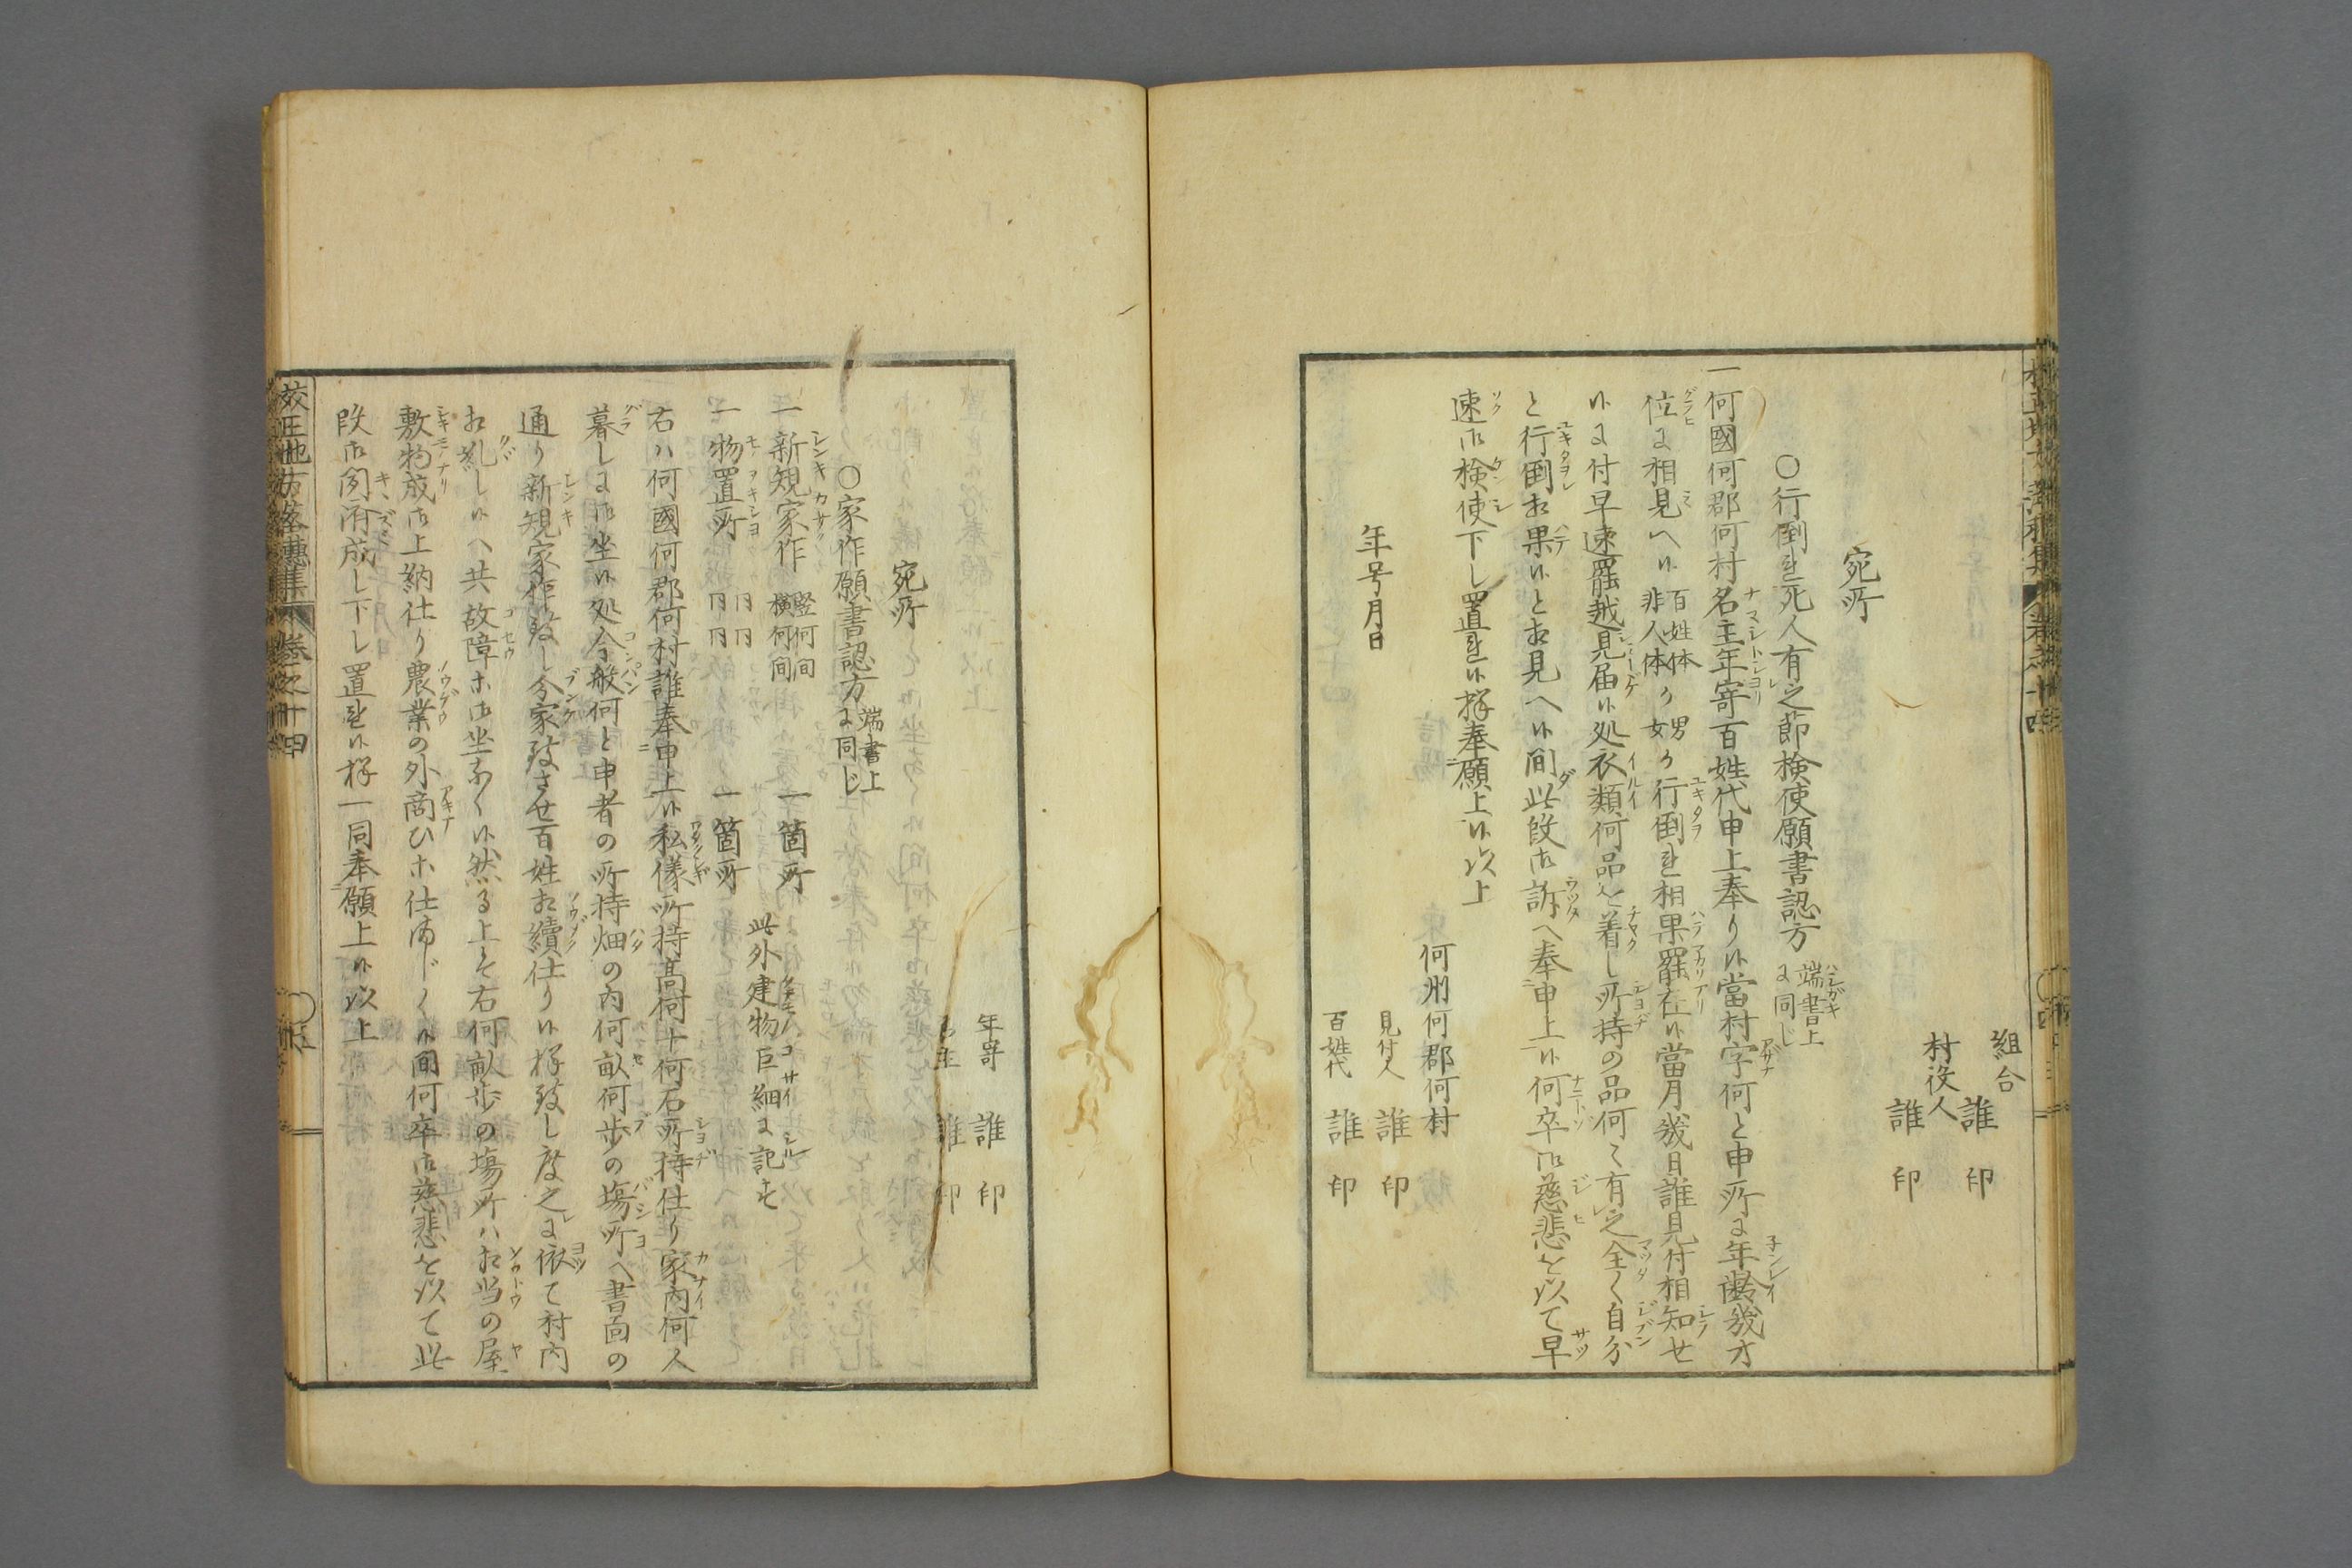 組合 誰 印
村役人 誰 印
宛所
○行倒れ死人有之節検使願書認方 端書上
に同じ
一何國何郡何村名主年寄百姓代申上奉り候當村字何と申所に年齢幾才
位に相見へ候 百姓体
非人体 か 男
女 か行倒れ相果罷在候當月幾日誰見付相知せ
候に付早速罷越見届候処衣類何品を着し所持の品何々有之全く自分
と行倒相果候と相見へ候間此段御訴へ奉申上候何卒御慈悲を以て早
速御検使下し置れ候様奉願上候以上
何州何郡何村
年号月日
見付人 誰 印
百姓代 誰 印
年寄 誰 印
名主 誰 印
宛所
○家作願書認方 端書上
に同じ
一新規家作 竪何間
横何間 一箇所
一物置所 同 同
同 同 一箇所
此外建物巨細に記す
右ハ何國何郡何村誰奉申上候私儀所持高何十何石所持仕り家内何人
暮しに御坐候処今般何と申者の所持畑の内何畝何歩の場所へ書面の
通り新規家作致し分家致させ百姓相續仕り候様致し度之に依て村内
相乱し候へ共故障等御坐なく候然る上は右何畝歩の場所ハ相当の屋
敷物成御上納仕り農業の外商ひ等仕まじく候間何卒御慈悲を以て此
段御聞済成し下し置れ候様一同奉願上候以上
校正地方落穂集 巻之十四